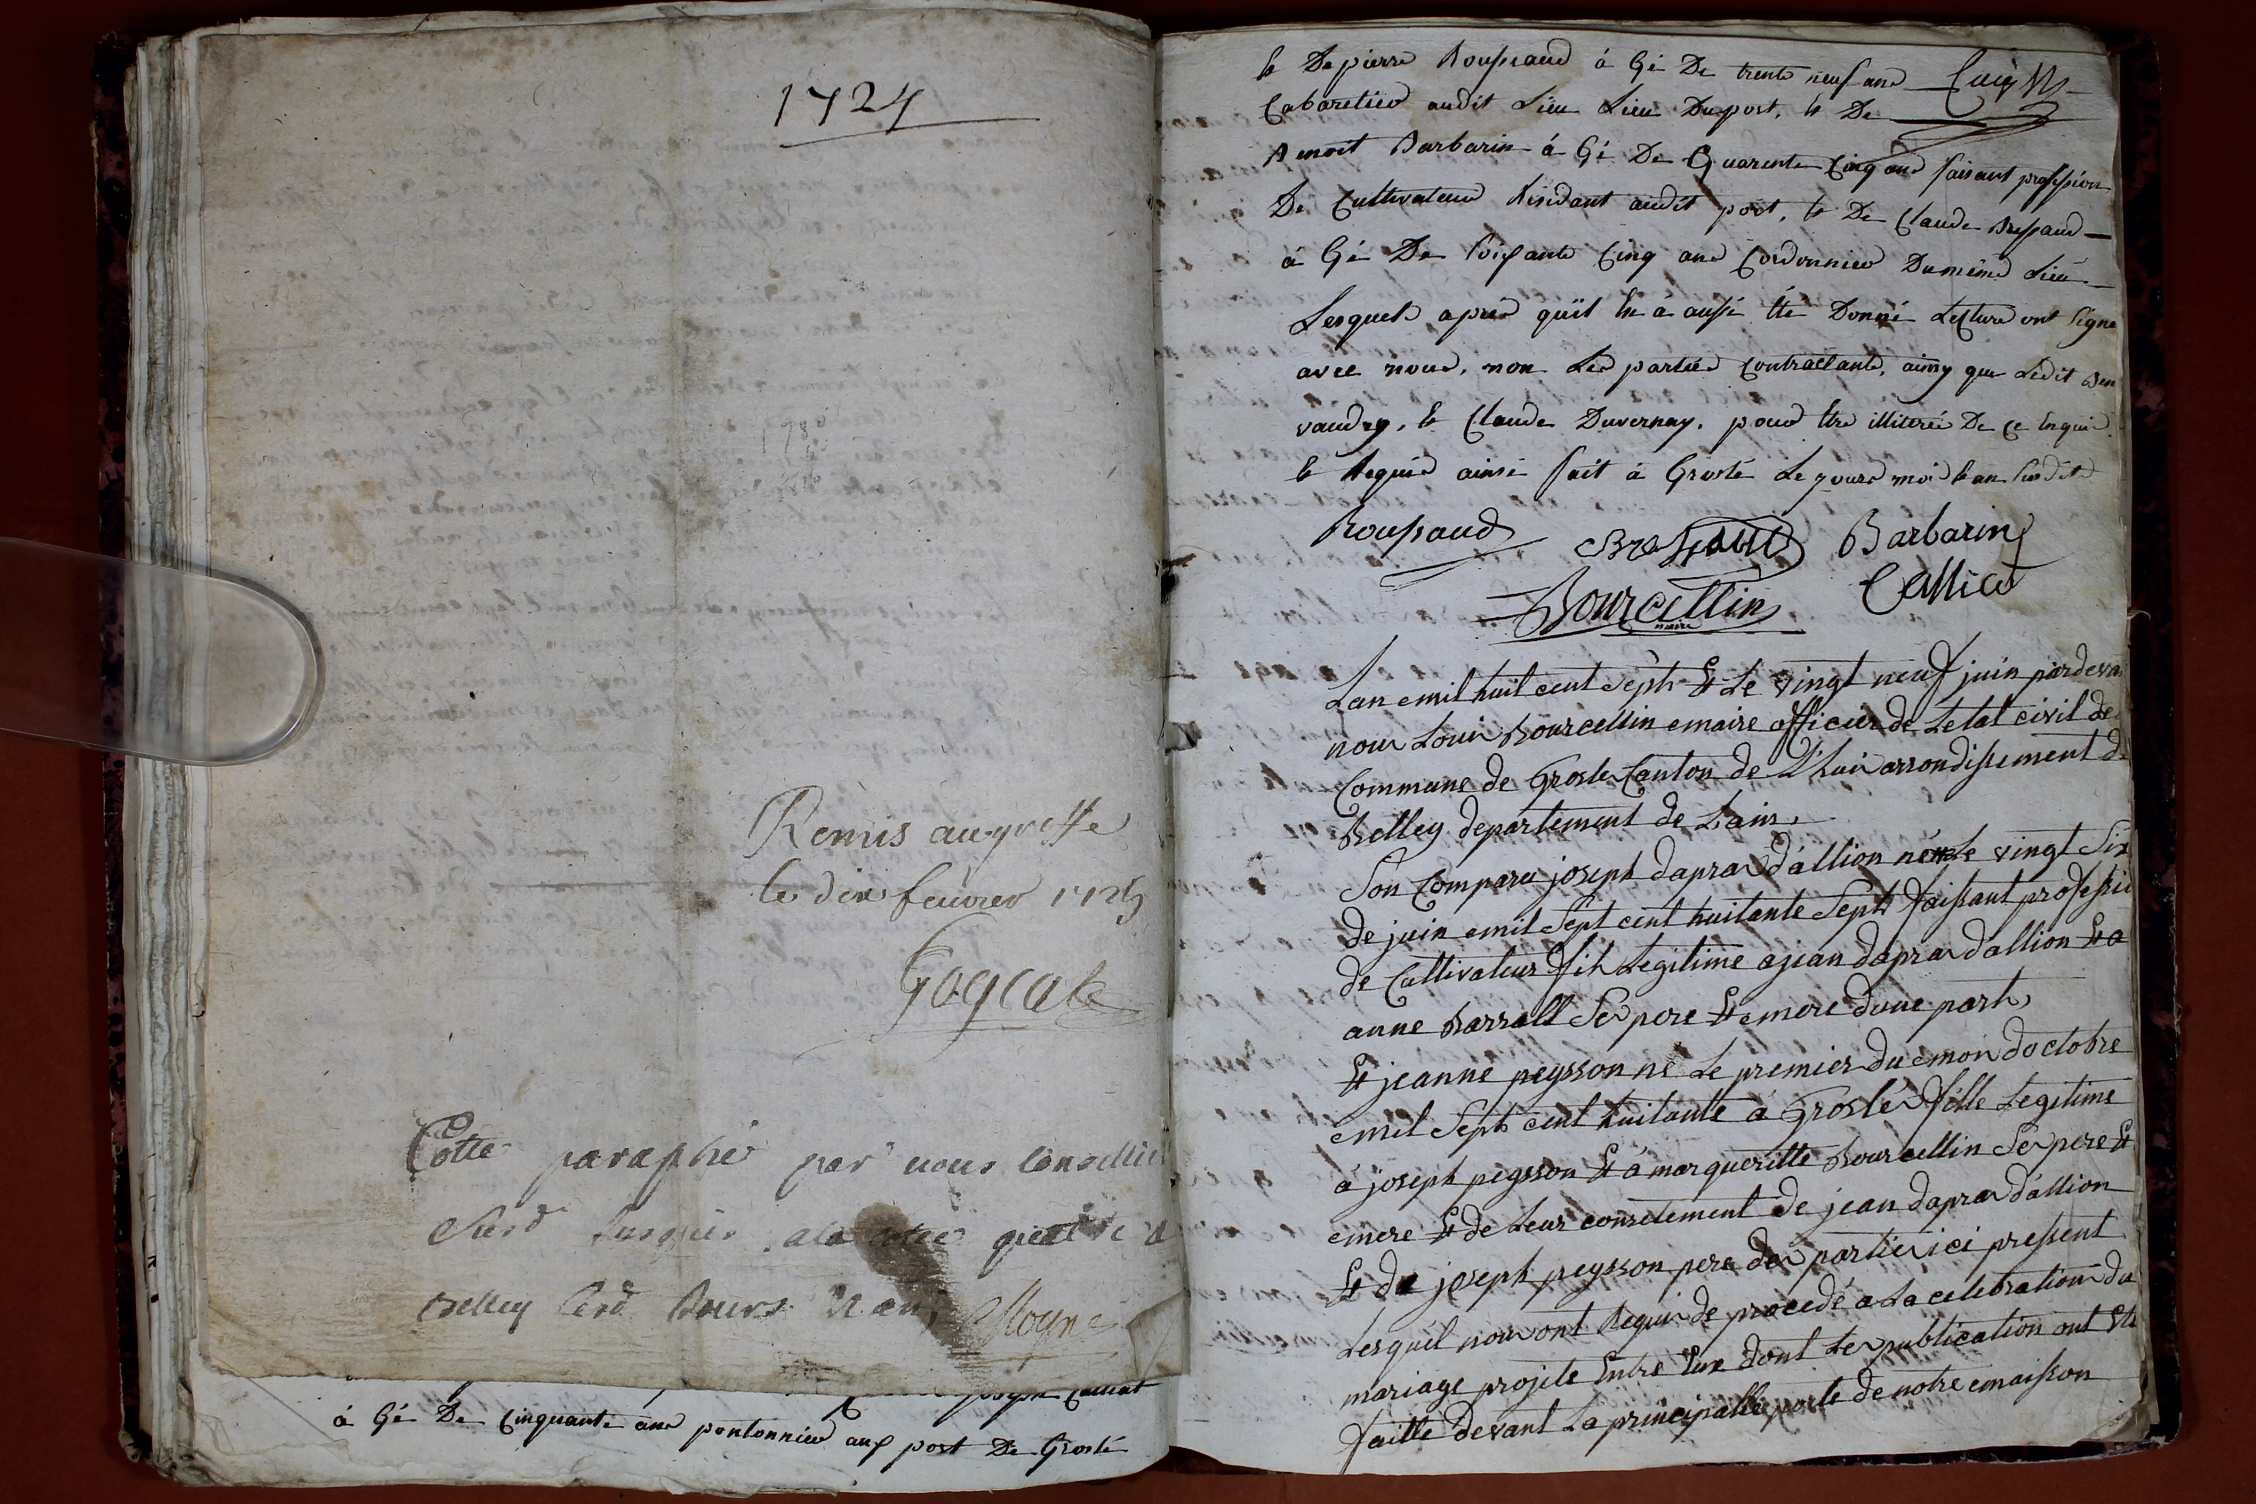 1724
Remis au greffe
le dix feuvrier 1725
Cotté paraphé par nous
Belley
à Gé De Cinquante ans pontonnier aux port De Groslé
Et De pierre Roussaud à Gé De trente neuf ans
Cabaretier audit Lieu Lieu Du port, Et De
Benoit Barbarin à Gé De Quarente Cinq ans faisant profession
De Cultivateur Residant audit port, Et De Claude Bressaud
à Gé De Soissante Cinq ans Cordonnier Du même Lieu
Lesquels après qu'il En à aussi Eté Donné Lecture ont signe
avec nous, non Les parties Contractante, ainsy que Ledit Ben
vaudry, Et Claude Duvernay, pour Etre illiteré De ce Enquis
Et Requis ainsi fait à Groslé Le jours mois Et an susdit
Roussaud Bressaud Barbarin
Bourcellin Callier
maire
Lan mil huit cent sept Et Le vingt neuf juin pardeva
nous Louis Bourcellin maire officier de Letat civil de
Commune de Grosle Canton de Lhuis arrondissement d
Belley departement de Lain,
Son Comparu joseph dapras d'allion né Le vingt Six
de juin mil Sept cent huitante Sept faissant professi
de Cultivateur fils Legitime a jean dapras dallion Et a
anne Barrall Ses pere Et mere dune part,
Et jeanne peysson né Le premier du mois doctobre
mil Sept cent huitante a Groslé fille Legitime
à joseph peysson Et à margueritte Bourcellin Ses pere Et
mere Et de Leur consetement de jean dapras d'allion
Et de joseph peysson pere des parties ici present
Lesquel nous ont Requis de procedé a La celebration du
mariage projete Entre Eux dont Les publication ont Et
faitte devant La principalle porte de notre maisson